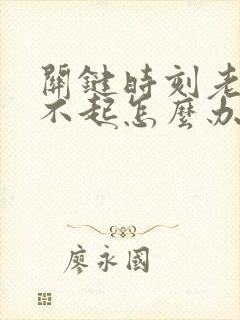 關鍵時刻老
不起怎麼办
廖永國